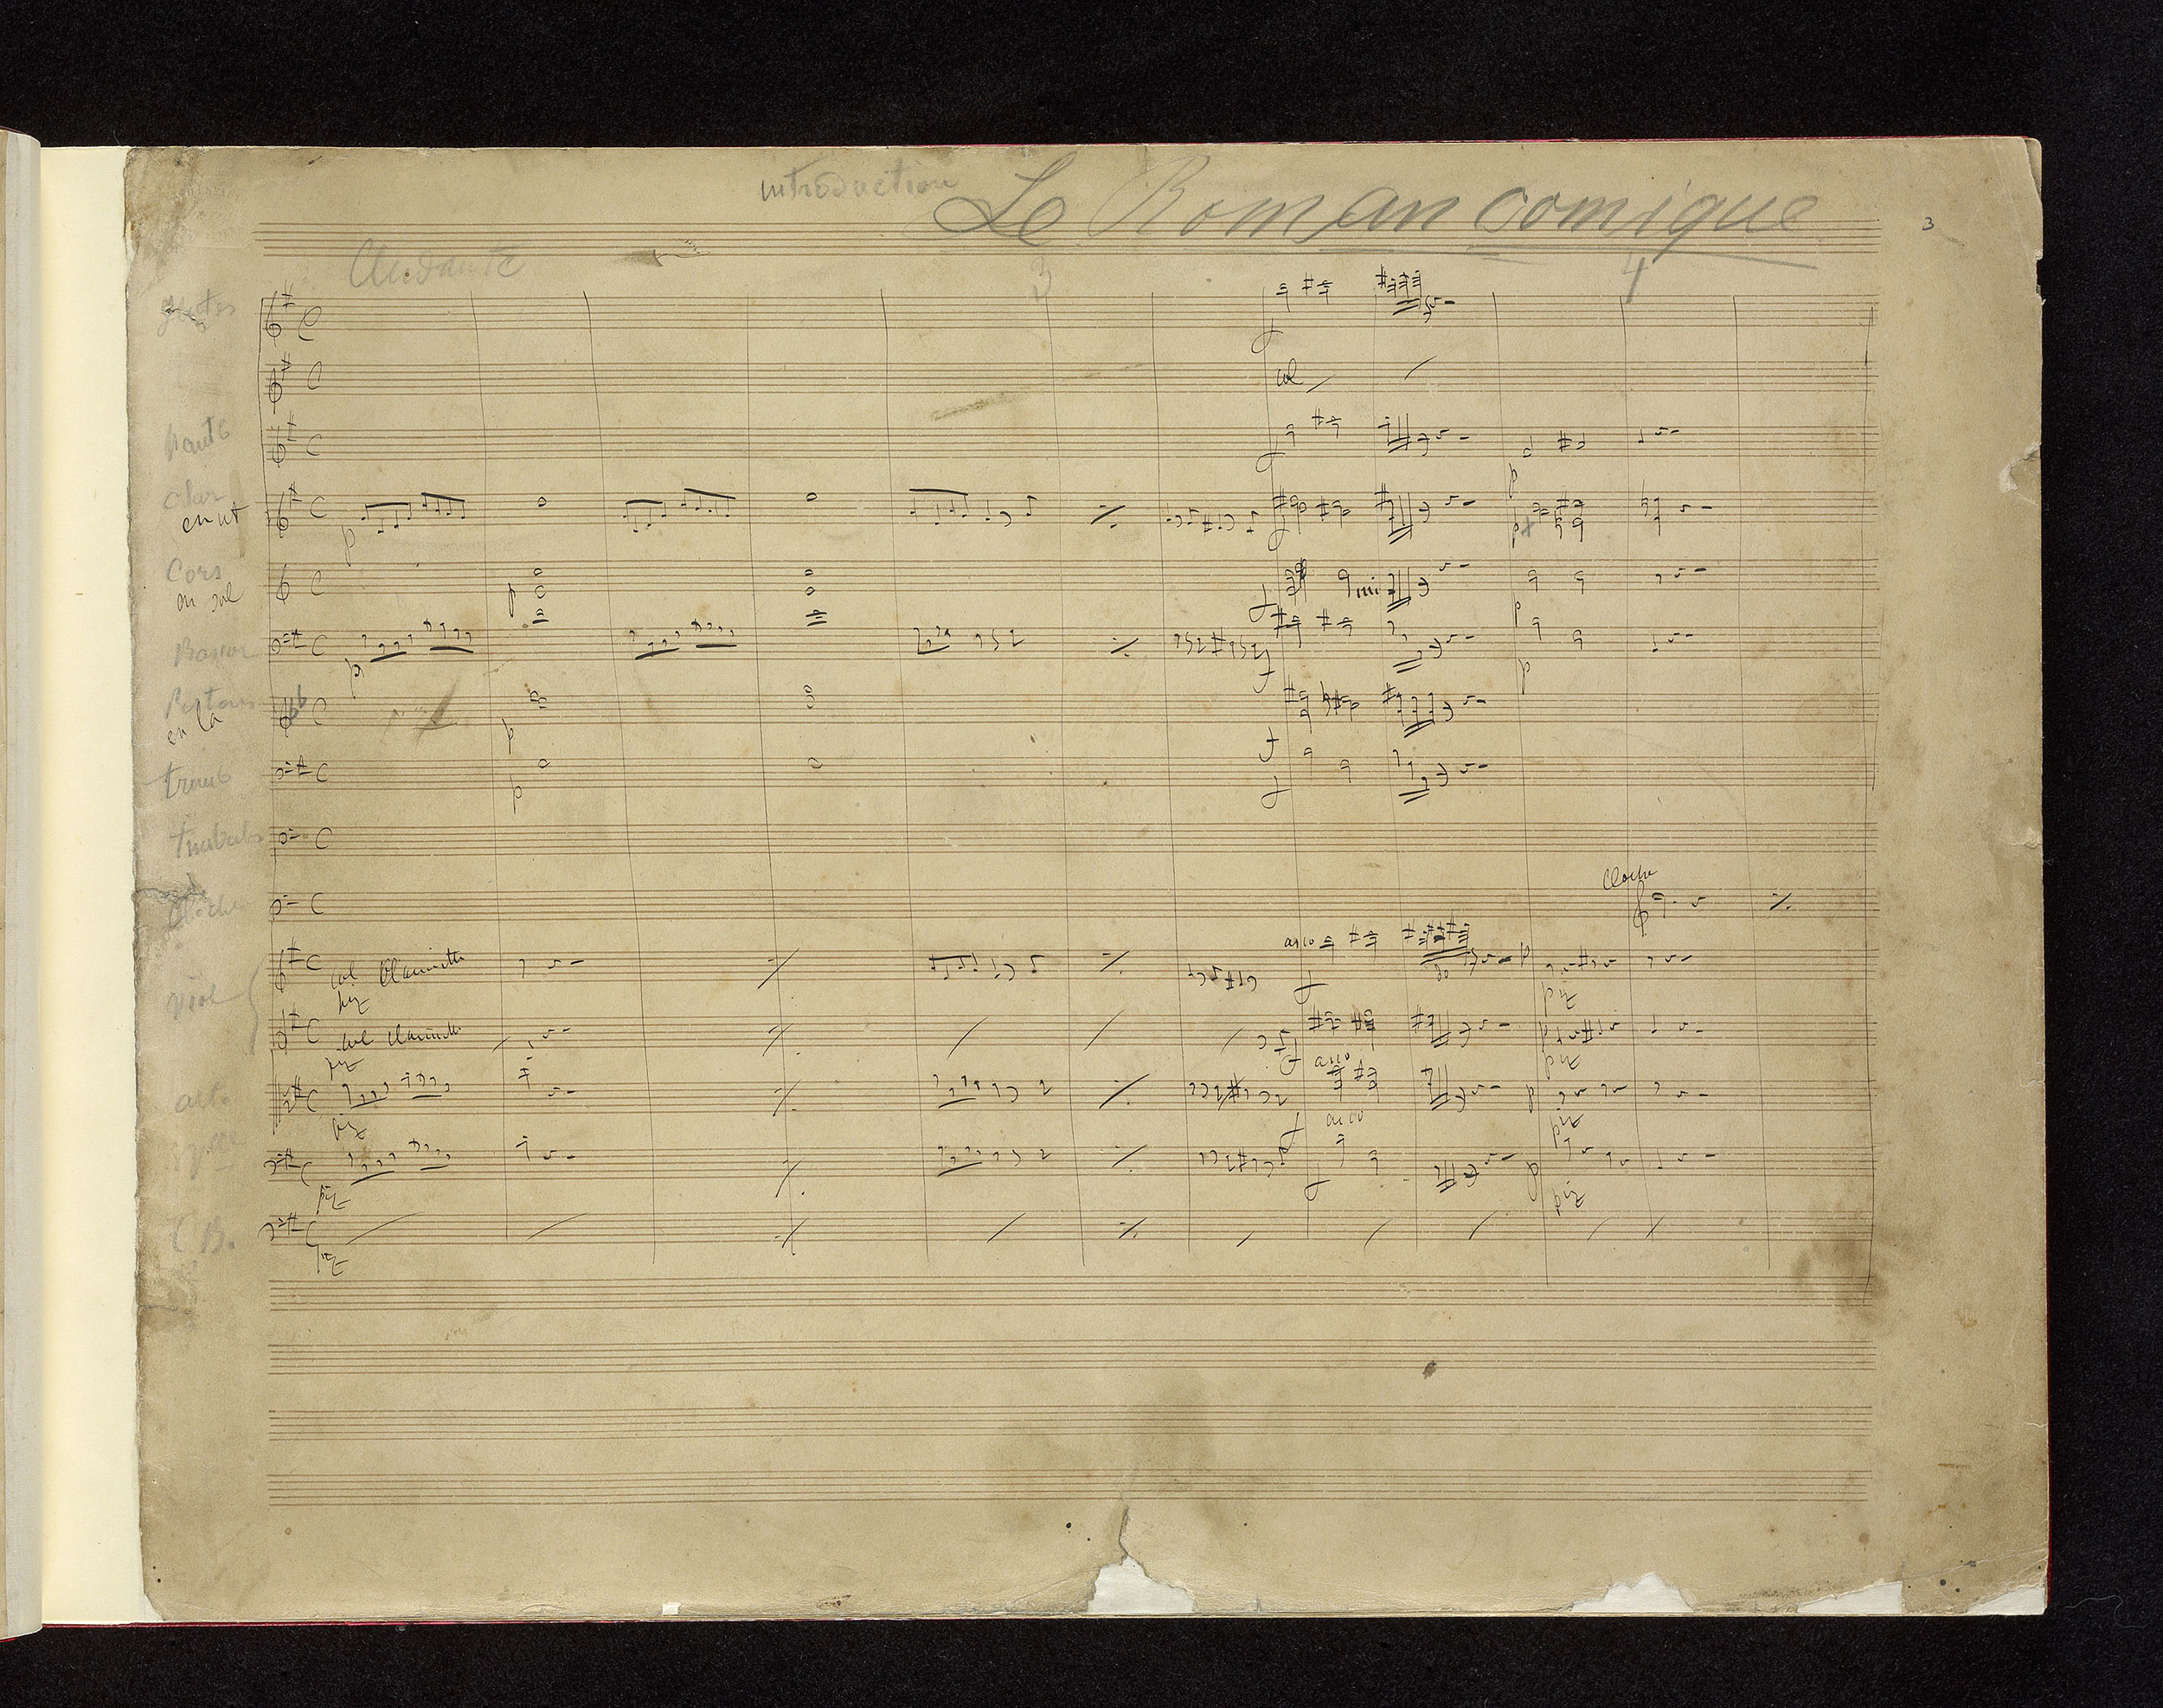 introduction Le Roman comique
3
Andante
3
4
flutes
col
hautb
clar
en ut
p
f
p
Cors
en sol
p
f
mi
p
Basson
p
f
p
Pistons
en la
p
f
tromb
p
f
Cloche
Cloche
viol
col Clarinette
piz
arco
f
p
piz
col Clarinette
piz
f
arco
p
piz
alt.
piz
f
arco
p
piz
piz
f
p
piz
C.B.
piz